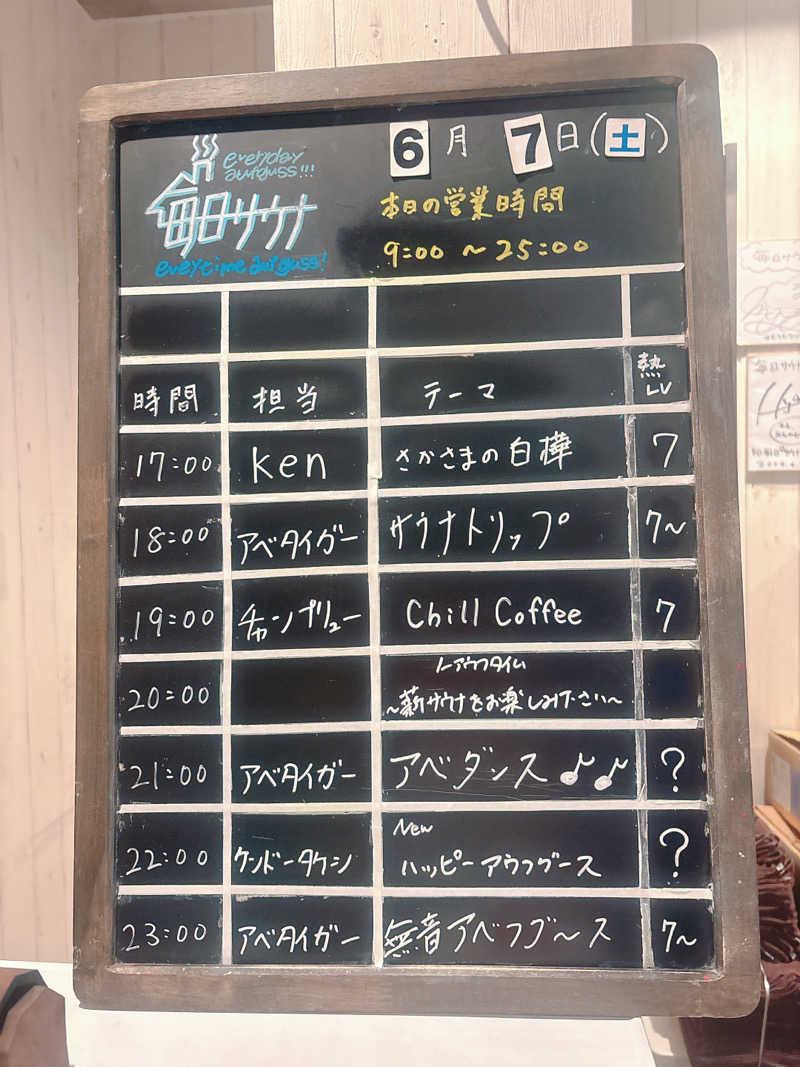 everyday
aufguss!!!
毎日サウナ
everytime aufguss!
6月 7日(土)
本日の営業時間
9:00 ~ 25:00
時間 担当 テーマ 熱LV
17:00 Ken さかさまの白樺 7
18:00 アベタイガー サウナトリップ 7~
19:00 チャンブリュー Chill Coffee 7
20:00 ~薪サウナをお楽しみ下さい~
21:00 アベタイガー アベダンス♪♪ ?
New
22:00 ケンドータケシ ハッピーアウフグース ?
23:00 アベタイガー 無音アベフグ~ス 7~